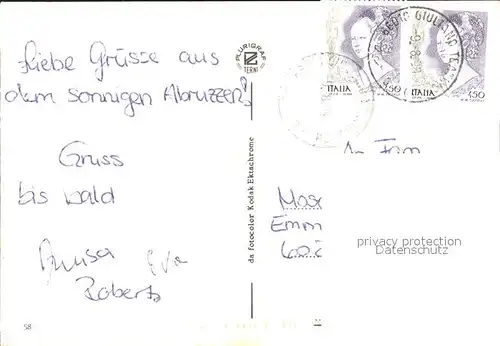 Liebe Grüsse aus
dem sonnigen Abruzzen!
Gruss
bis bald
Eva
Roberto
58
PLURIGRAF
TERNI
da fotocolor Kodak Ektachrome
66010 GIULIANO TEATINO
ITALIA
450
ITALIA
450
Fam
Mos
Emm
600
privacy protection
Datenschutz